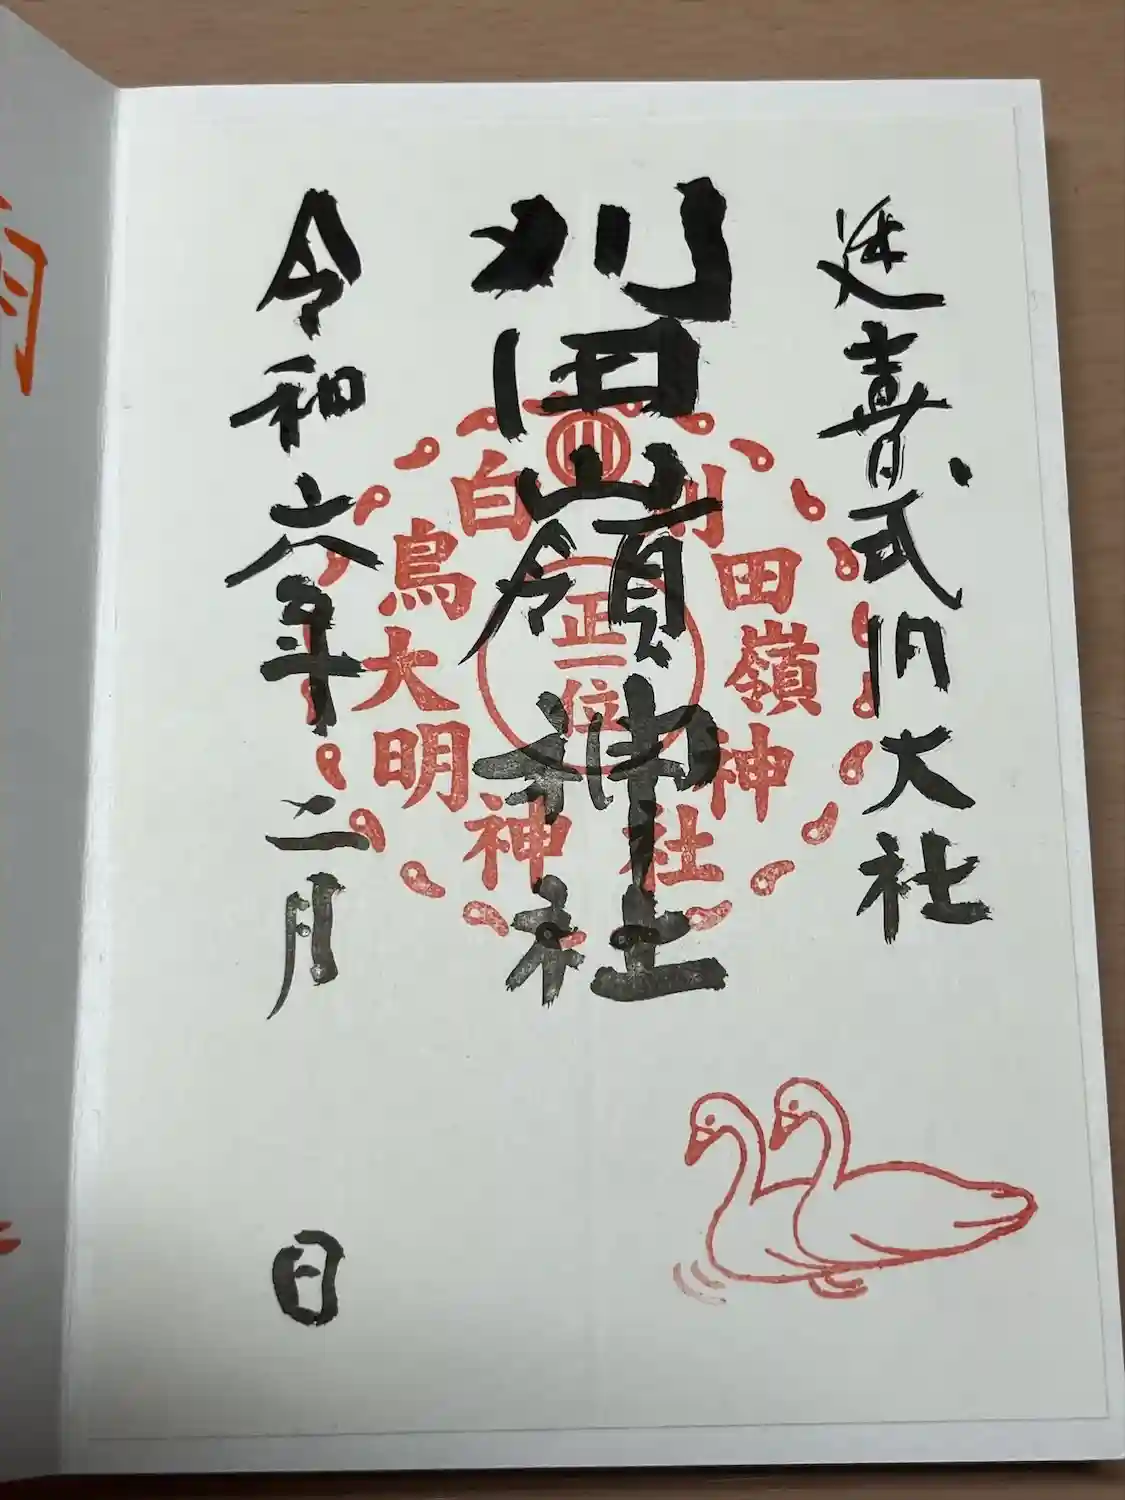 延喜式内大社
刈田嶺神社
令和六年二月 日
刈田嶺神社
正一位
白鳥大明神